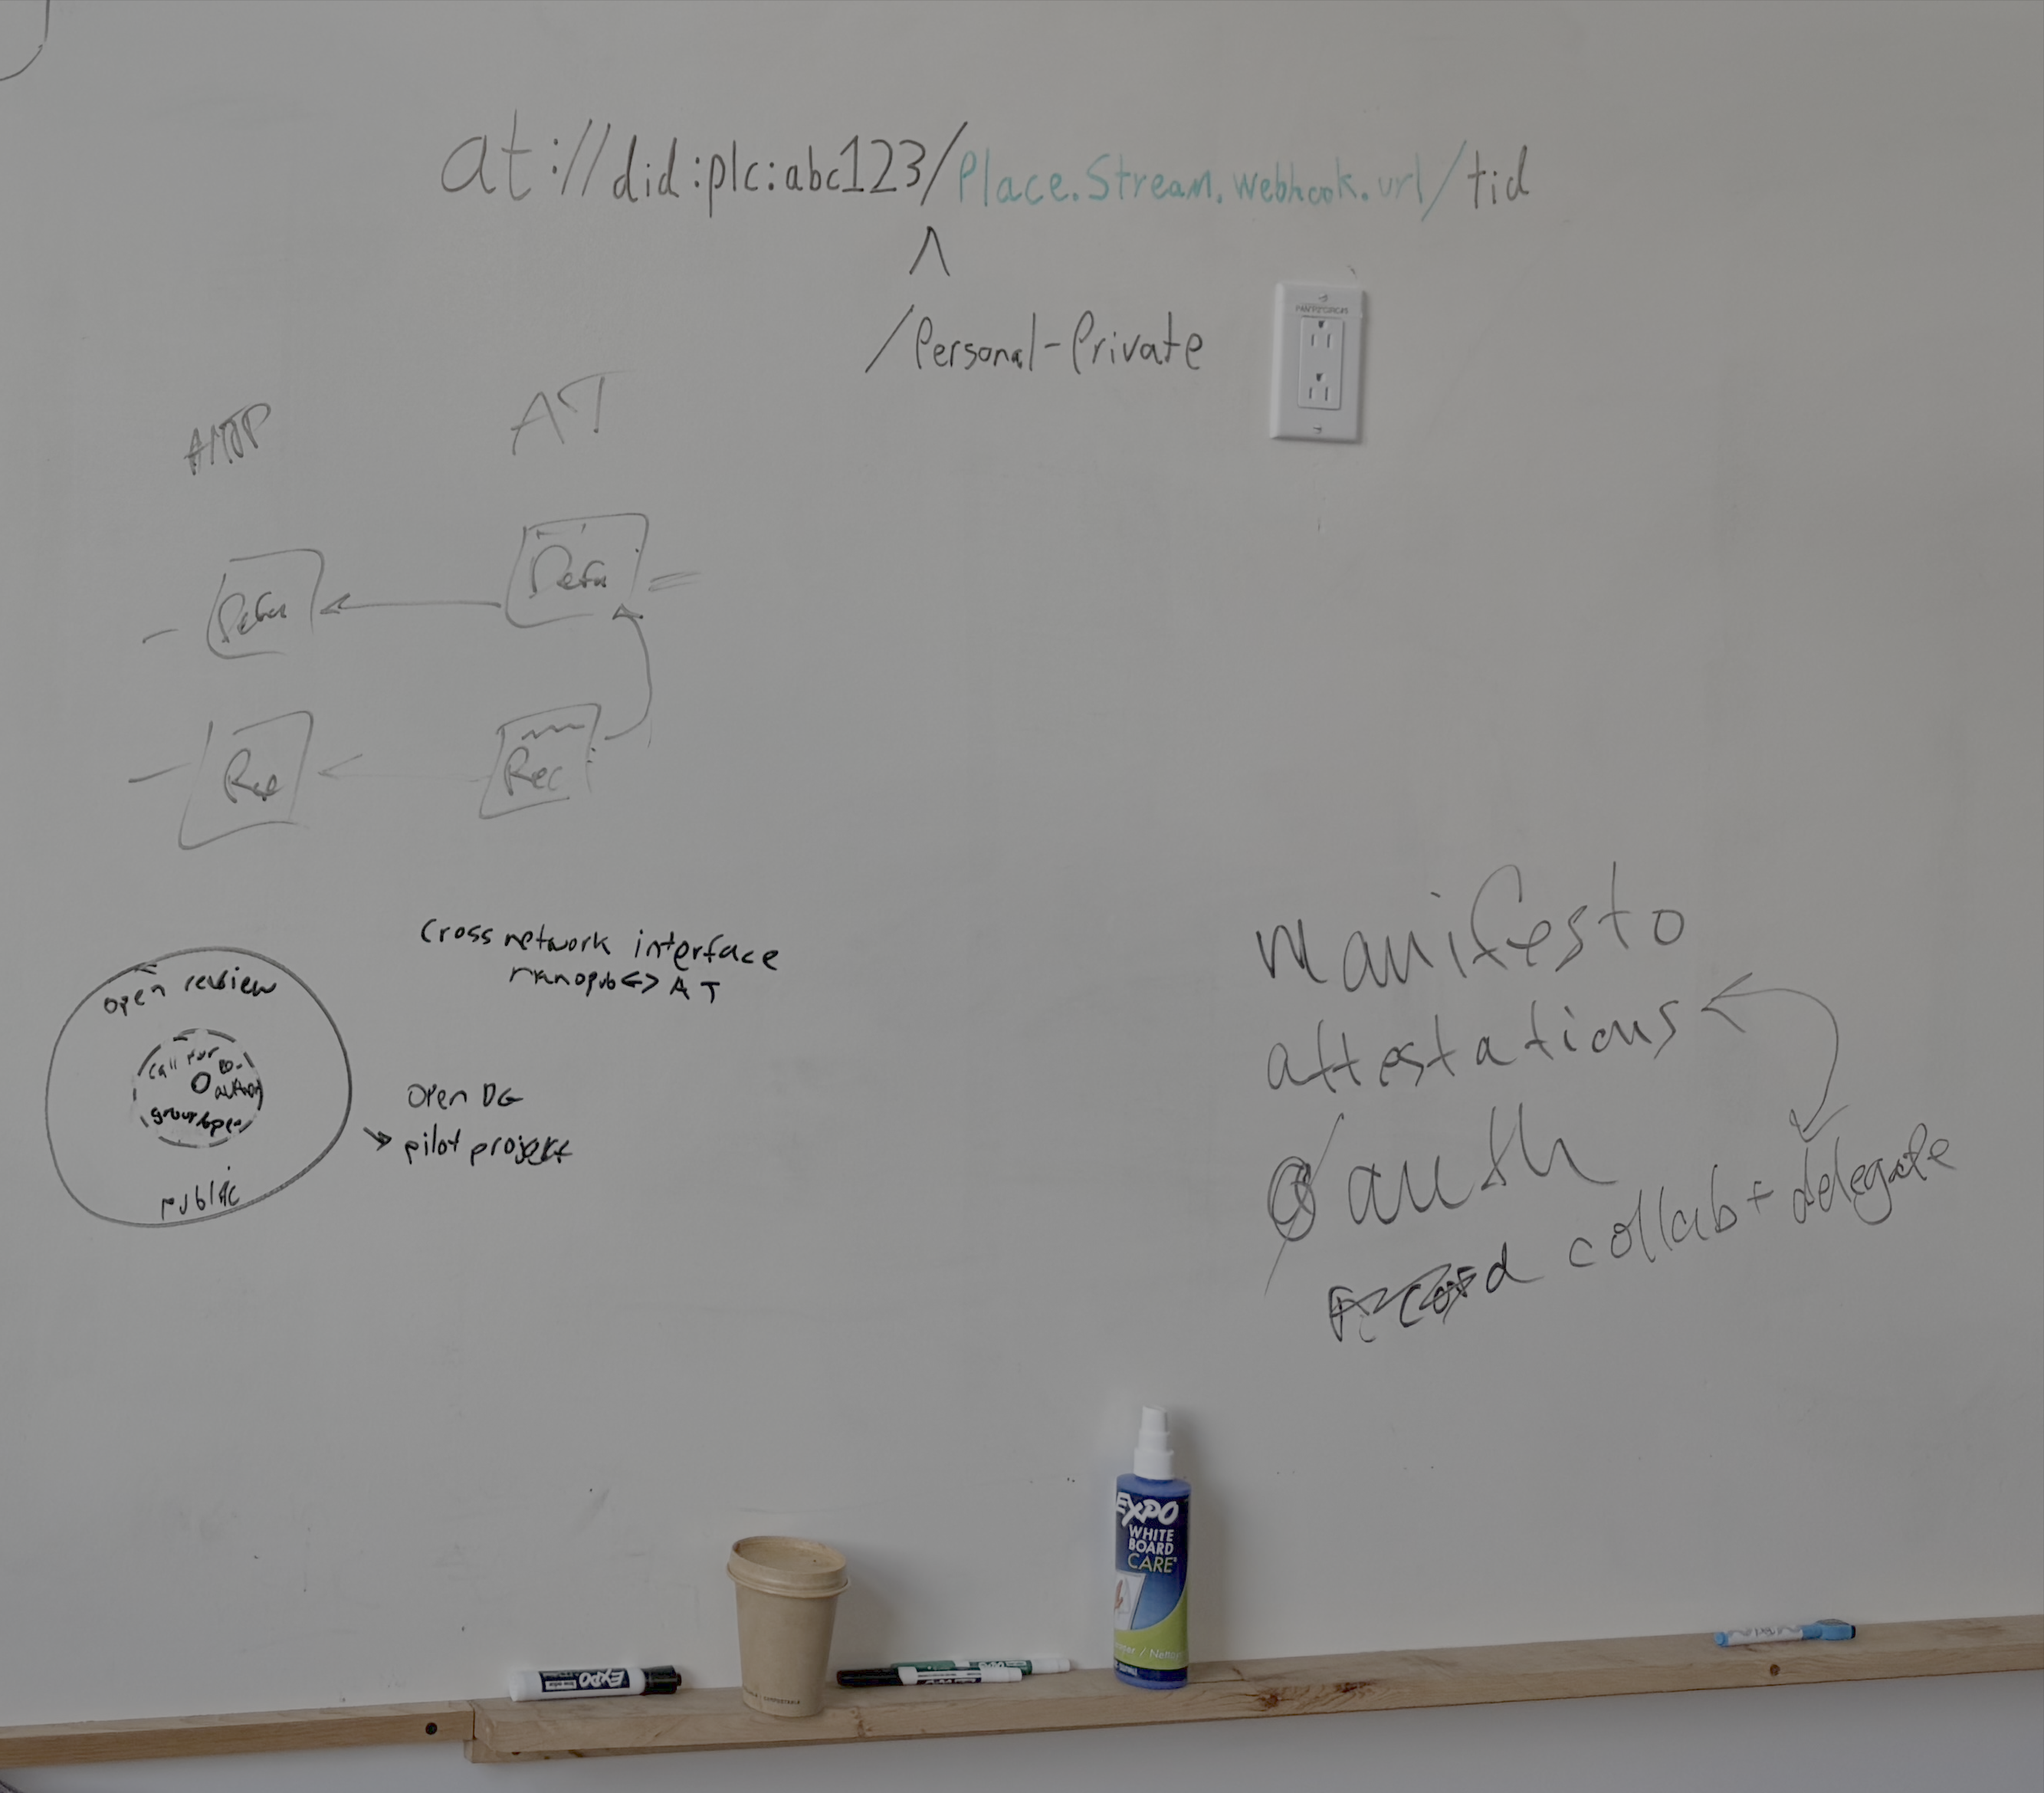 at://did:plc:abc123/Place.Stream.webhook.url/tid
^
/Personal-Private
AT
Defn
Defn
Rec
Rec
Cross network interface
nanopub <-> AT
open review
call for co-
author
group open
public
Open DG
→ pilot project
manifesto
attestations
auth
record collab + delegate
EXPO
WHITE
BOARD
CARE
EXPO